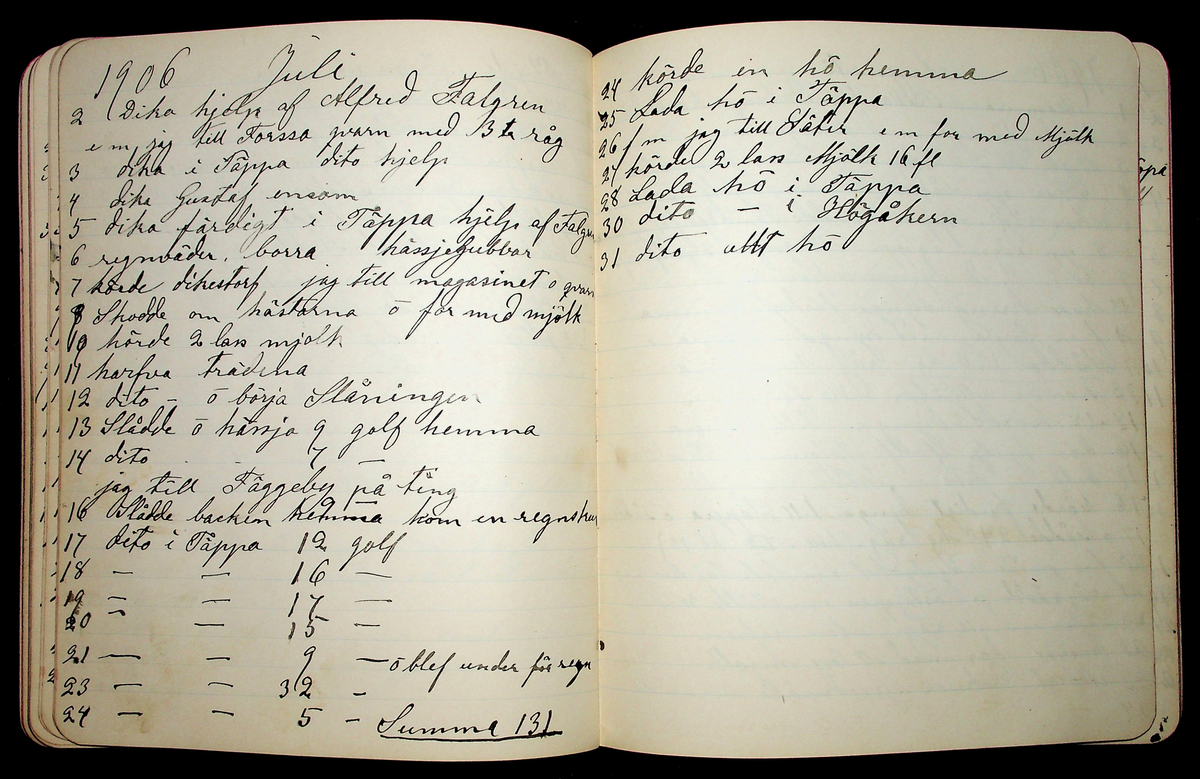 1906 Juli
2 Dika hjelp af Alfred Falgren
e m jag till Forssa qvarn med 3 tr råg
3 dika i Täppa dito hjelp
4 dika Gustaf ensam
5 dika färdigt i Täppa hjelp af Falgre
6 regnväder. borra hässjegubbar
7 körde dikestorf jag till magasinet o qvarn
8 Skodde om hästarna ō for med mjölk
10 körde 2 lass mjölk
11 harfva trädena
12 dito – ō börja Slåningen
13 Slådde ō hässja 9 golf hemma
14 dito 7 —
jag till Fäggeby på ting
16 Slådde backen hemma kom en regnskur
17 dito i Täppa 12 golf
18 — — 16 —
19 — — 17 —
20 — — 15 —
21 — — 9 — ō blef under för regn
23 — — 32 —
24 — — 5 — Summa 131
24 körde in hö hemma
25 Lada hö i Täppa
26 f m jag till Säter e m for med Mjölk
27 körde 2 lass Mjölk 16 fl
28 Lada hö i Täppa
30 dito — i Högåkern
31 dito allt hö